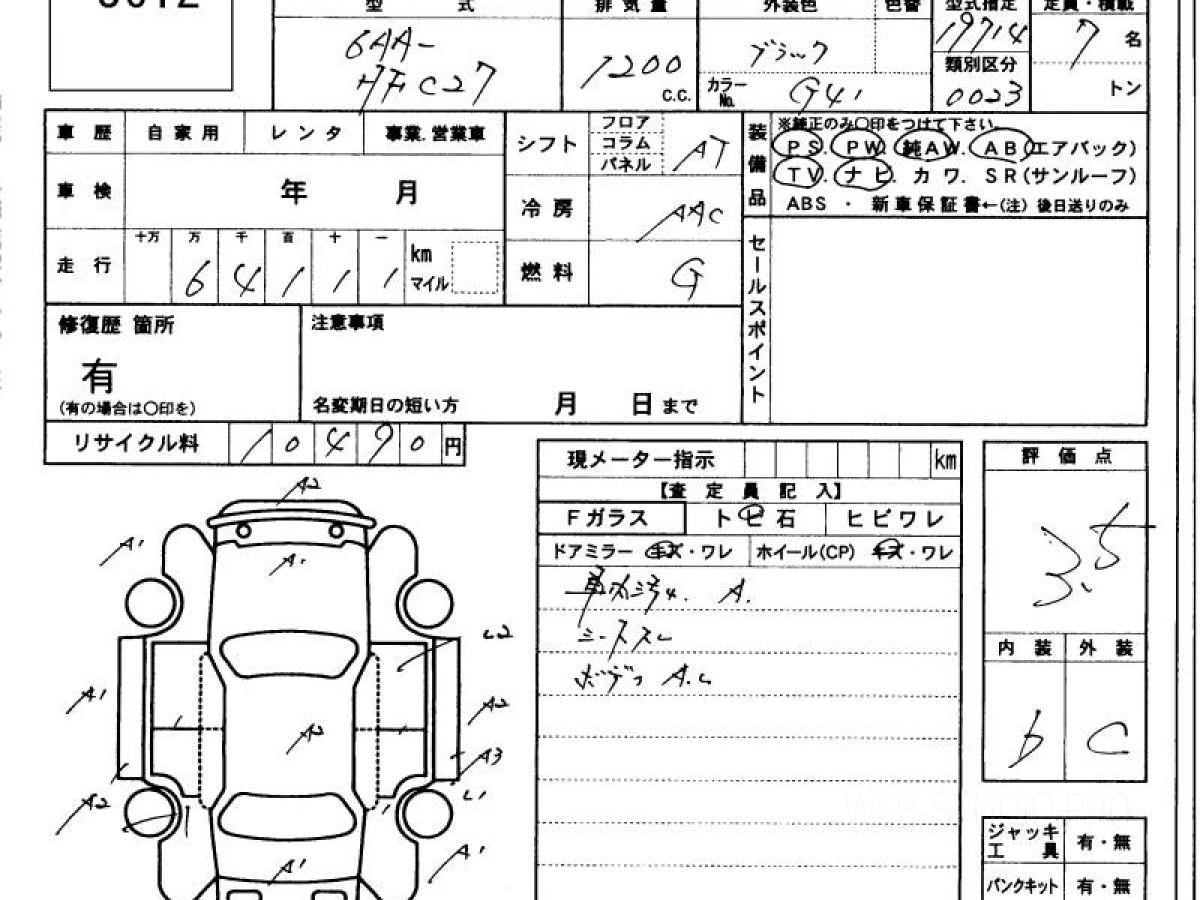 型 式
排気量
外装色
色替
型式指定
定員・積載
6AA-
HFC27
1200
C.C.
ブラック
カラーNo.
G41
19714
類別区分
0023
7 名
トン
車歴 自家用 レンタ 事業.営業車
シフト
フロア
コラム
パネル
AT
装備品
※純正のみ○印をつけて下さい。
PS. PW. 純AW. AB(エアバック)
TV. ナビ. カワ. SR(サンルーフ)
ABS ・ 新車保証書←(注) 後日送りのみ
車検 年 月
冷房 AAC
走行
十万 万 千 百 十 一
6 4 1 1 1
km
マイル
燃料 G
セールスポイント
修復歴 箇所
有
(有の場合は○印を)
注意事項
名変期日の短い方 月 日まで
リサイクル料 10490円
現メーター指示 km
【査定員記入】
Fガラス トビ石 ヒビワレ
ドアミラー キズ・ワレ ホイール(CP) キズ・ワレ
A.
シーススレ
評価点
3.5
内装 外装
b C
A2
A1
A1
L2
A1
A2
A2
A3
A2
L1
A1
A1
WEB-STUDIO.PRO
ジャッキ
工具 有・無
パンクキット 有・無